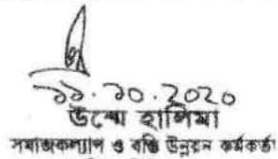 ১১.১০.2020
উম্মে হালিমা
সমাজকল্যাণ ও বস্তি উন্নয়ন কর্মকর্তা